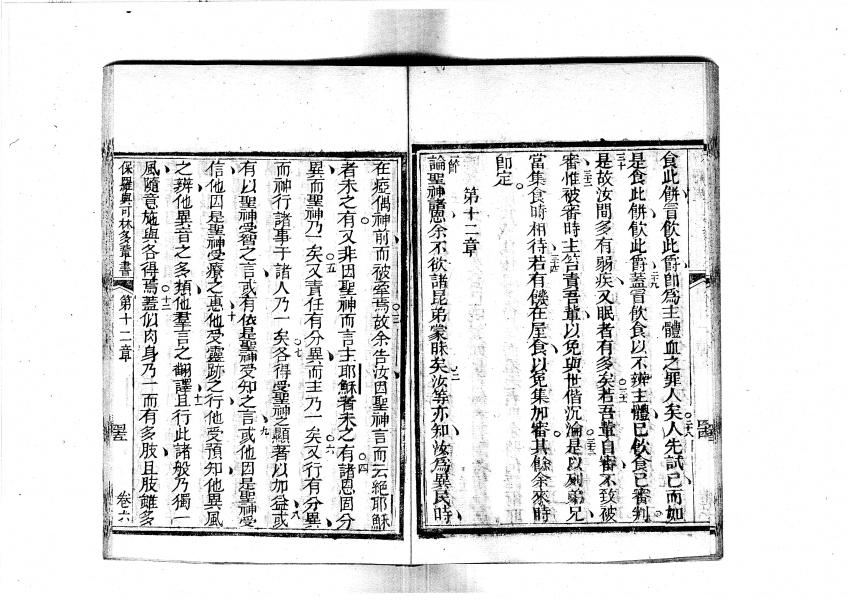 食此餅冒飲此爵卽爲主體血之罪人矣人先試己而如
是食此餅飲此爵蓋冒飲食以不辨主體已飲食己審判
是故汝間多有弱疾又眠者有多矣若吾輩自審不致被
審惟被審時主笞責吾輩以免與世偕沉淪是以列弟兄
當集食時相待若有饑在屋食以免集加審其餘余來時
卽定
第十二章
論聖神諸恩余不欲諸昆弟蒙昧矣汝等亦知汝爲異民時
在啞偶神前而被牽焉故余告汝因聖神言而云絕耶穌
者未之有又非因聖神而言主耶穌者未之有諸恩固分
異而聖神乃一矣又責任有分異而主乃一矣又行有分異
而神行諸事于諸人乃一矣各得受聖神之顯著以加益或
有以聖神受智之言或有依是聖神受知之言或他因是聖神受
信他因是聖神受療之惠他受靈跡之行他受預知他異風
之辨他異音之多類他羣言之翻譯且行此諸般乃獨一
風隨意施與各得焉蓋似肉身乃一而有多肢且肢雖多
保羅與可林多輩書
第十二章
卷六